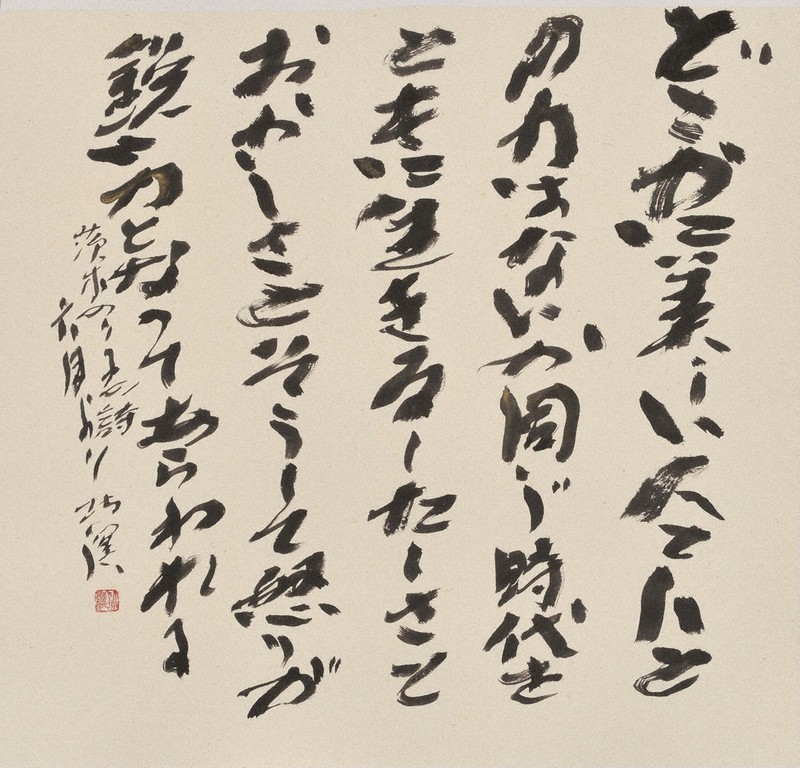 どこかに美しい人と人と
の力はないか同じ時代を
ともに生きるしたしさと
おかしさとそうして怒りが
鋭い力となってあらわれる
茨木のり子詩
六月より 北渓